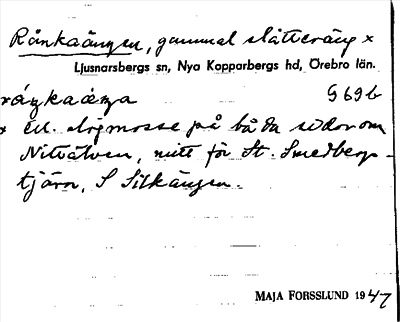 Rånkaängen, gammal slåtteräng x
Ljusnarsbergs sn, Nya Kopparbergs hd, Örebro län.
råŋkaäŋa G 69 b
x ell. dogmosse på båda sidor om
Nittälven, mitt för St. Smedberg-
tjärn, S Silkängen.
MAJA FORSSLUND 1947